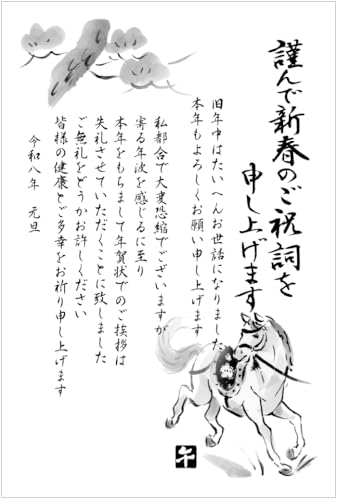 謹んで新春のご祝詞を
申し上げます
旧年中はたいへんお世話になりました
本年もよろしくお願い申し上げます
私都合で大変恐縮でございますが
寄る年波を感じるに至り
本年をもちまして年賀状でのご挨拶は
失礼させていただくことに致しました
ご無礼をどうかお許しください
皆様の健康とご多幸をお祈り申し上げます
令和八年　元旦
午